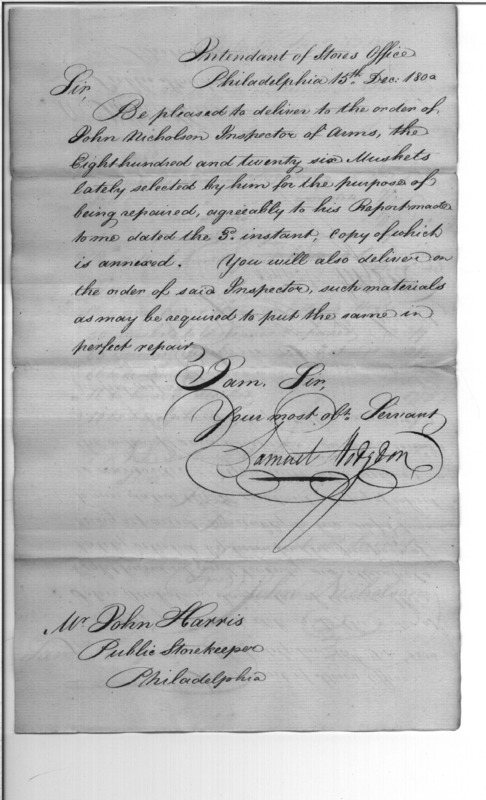 Intendant of Stores Office
Philadelphia 15th Dec: 1800
Sir,
Be pleased to deliver to the order of
John Nicholson Inspector of Arms, the
Eight hundred and twenty six Muskets
lately selected by him for the purpose of
being repaired, agreeably to his Report made
to me dated the 3d. instant, Copy of which
is annexed. You will also deliver on
the order of said Inspector, such materials
as may be required to put the same in
perfect repair
I am, Sir,
Your most obt. Servant
Samuel Hodgdon
Mr John Harris
Public Storekeeper
Philadelphia